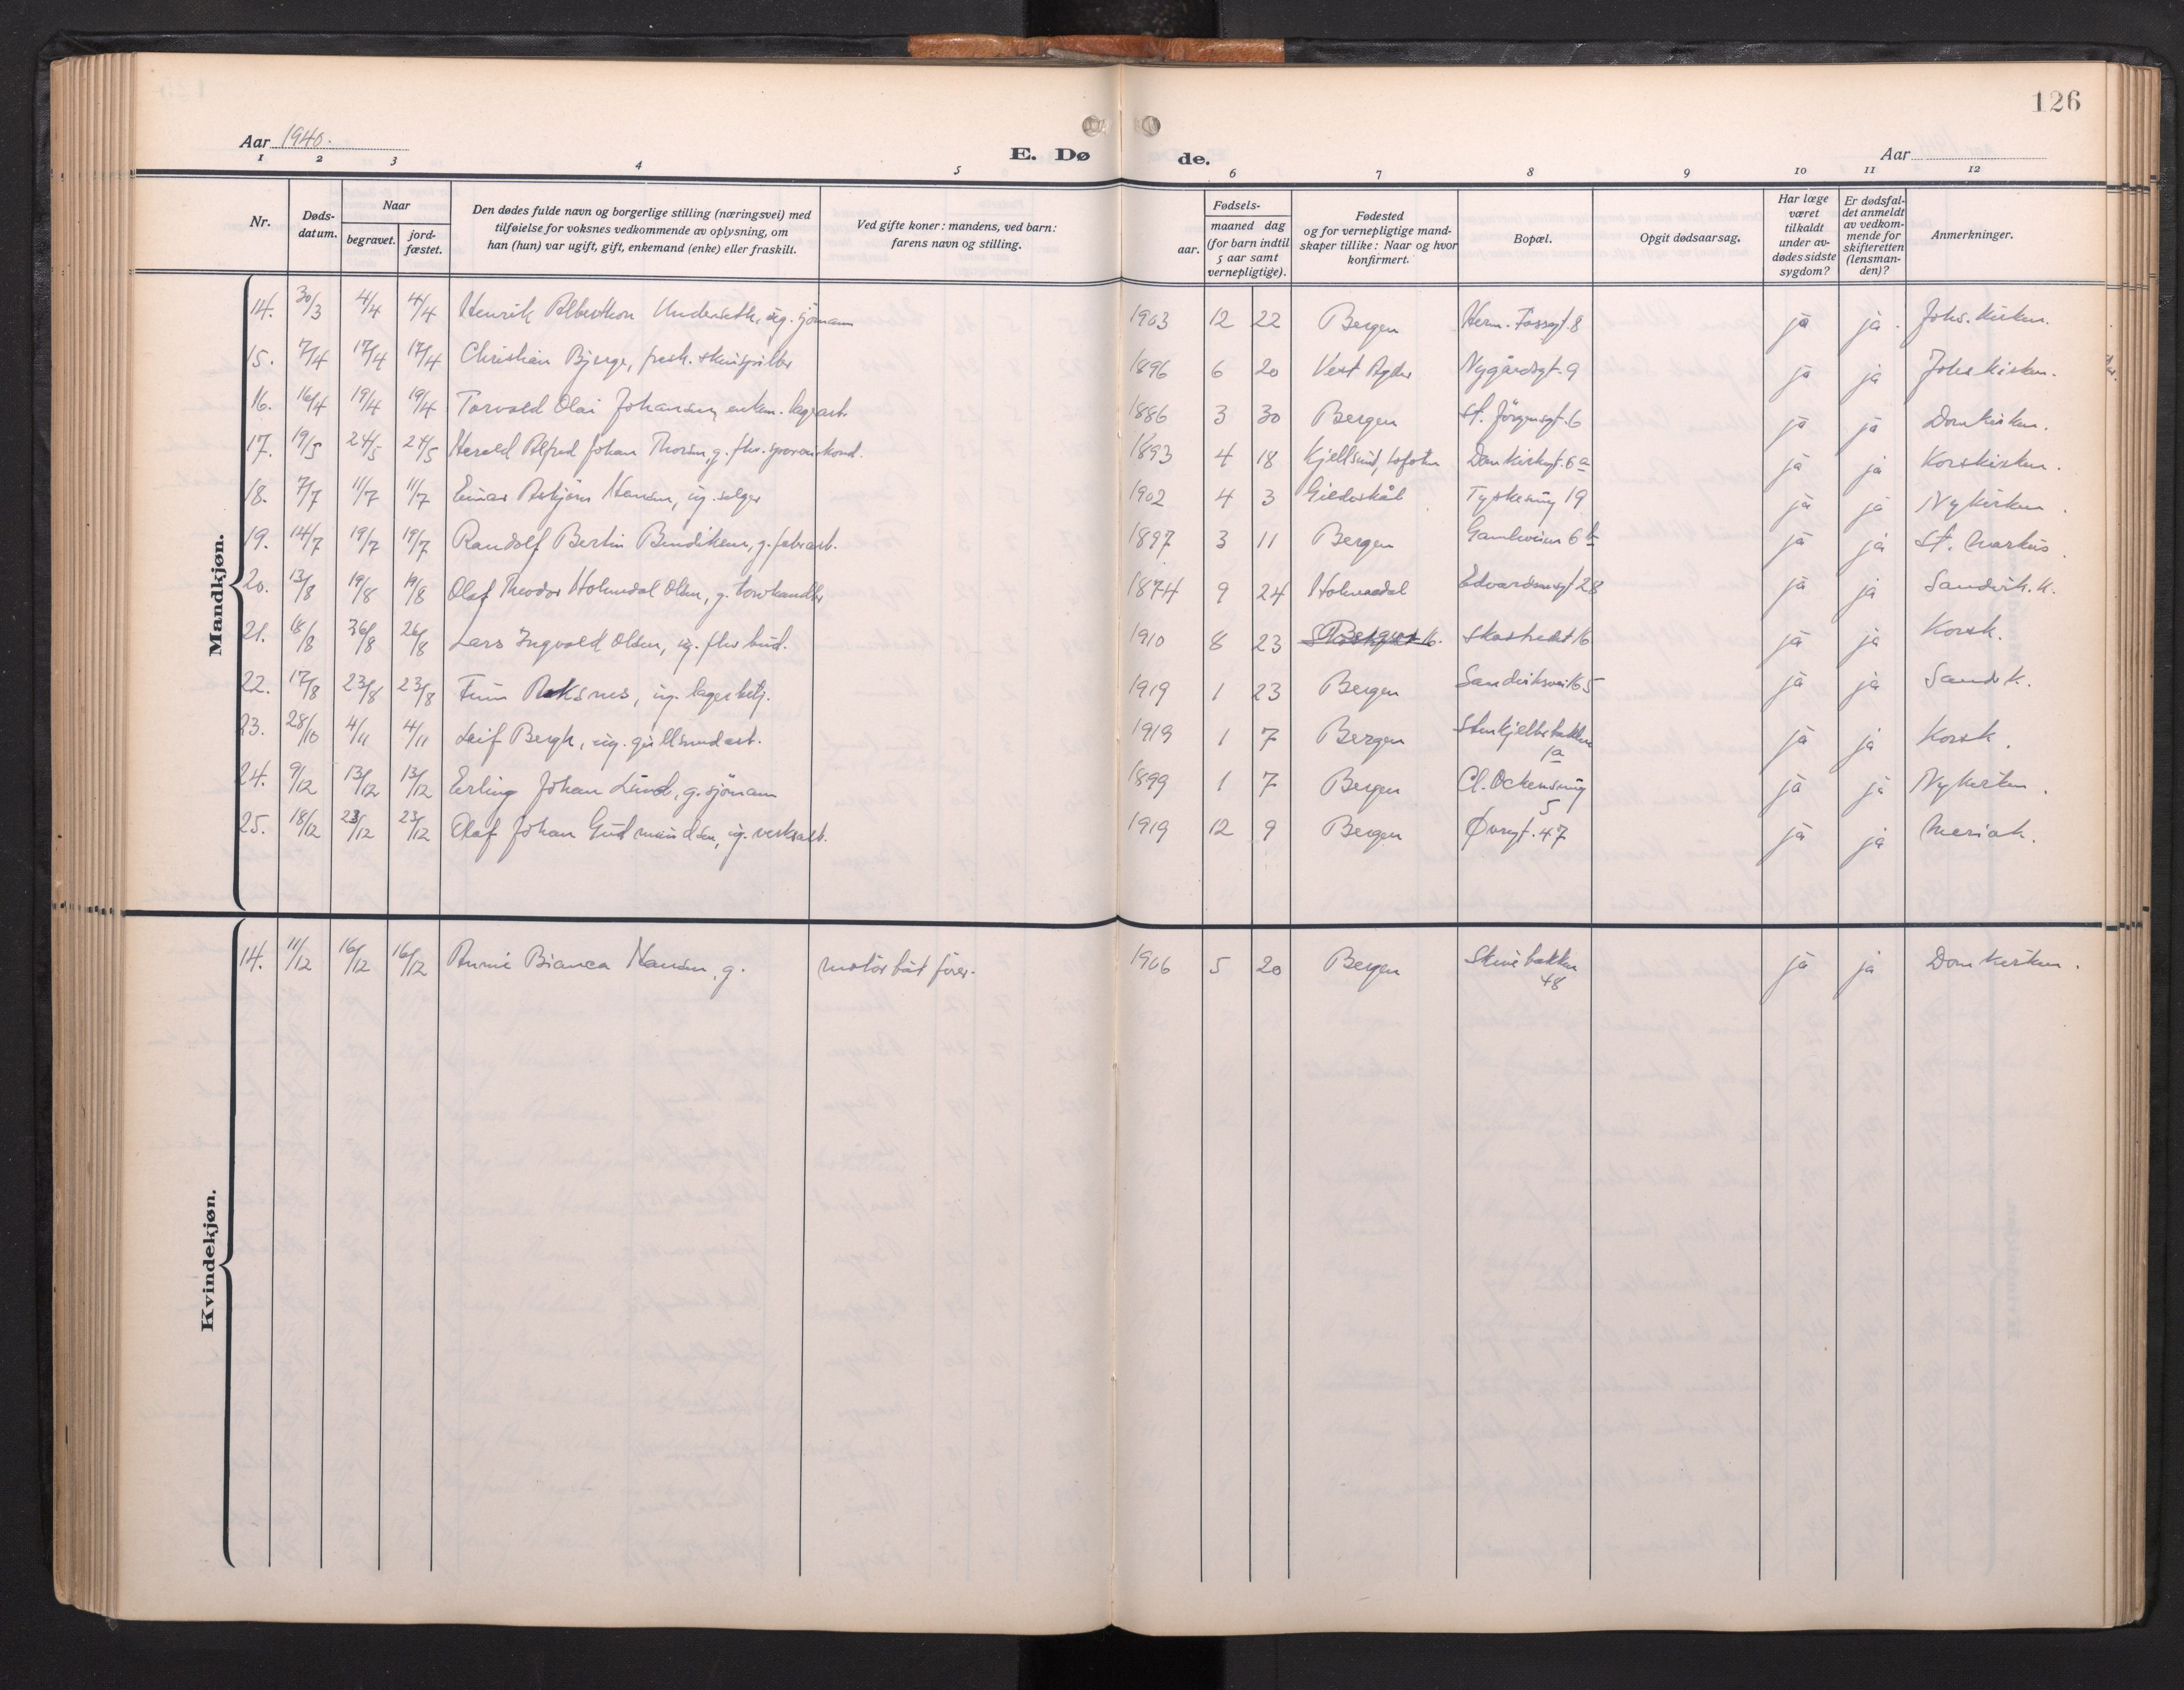 126
Aar 1940.
E. Døde.
Aar
1 2 3 4 5 6 7 8 9 10 11 12
Nr.
Døds-datum.
Naar
begravet.
jord-fæstet.
Den dødes fulde navn og borgerlige stilling (næringsvei) med
tilføielse for voksnes vedkommende av oplysning, om
han (hun) var ugift, gift, enkemand (enke) eller fraskilt.
Ved gifte koner: mandens, ved barn:
farens navn og stilling.
Fødsels-
aar.
maaned dag
(for barn indtil
5 aar samt
vernepligtige).
Fødested
og for vernepligtige mand-
skaper tillike: Naar og hvor
konfirmert.
Bopæl.
Opgit dødsaarsag.
Har læge
været
tilkaldt
under av-
dødes sidste
sygdom?
Er dødsfal-
det anmeldt
av vedkom-
mende for
skifteretten
(lensman-
den)?
Anmerkninger.
Mandkjøn.
14. 30/3 4/4 4/4 Henrik Underseth, ug. sjömann 1903 12 22 Bergen Herm. Fossgt. 8 ja ja. Johs. kirken.
15. 7/4 17/4 17/4 Christian Bjerge, skuespiller 1896 6 20 Vest Agder Nygårdsgt. 9 ja ja Johs kirken.
16. 16/4 19/4 19/4 Torvald Olai Johansen, enkem. lagerarb. 1886 3 30 Bergen St. Jörgensgt. 6 ja ja Domkirken.
17. 19/5 24/5 24/5 Harald Alfred Johan Thorsen, g. fhv. sporveiskond. 1893 4 18 Kjellsund, Lofoten Domkirkegt. 6 a ja ja Korskirken.
18. 7/7 11/7 11/7 Einar Asbjörn Hansen, ug. selger 1902 4 3 Gildeskål Tyskesmug 19 ja ja Nykirken.
19. 14/7 19/7 19/7 Randolf Bertin Bendiksen, g. fabrarb. 1897 3 11 Bergen Gamleveien 6 b ja ja St. Markus.
20. 13/8 19/8 19/8 Olaf Theodor Holmedal Olsen, g. torvhandler 1874 9 24 Holmedal Edvardsensgt 28 ja ja Sandvik. k.
21. 18/8 26/8 26/8 Lars Ingvald Olsen, ug. fhv bud. 1910 8 23 Skostredet 16 ja ja Korsk.
22. 17/8 23/8 23/8 Finn Roksnes, ug. lagerbetj. 1919 1 23 Bergen Sandviksvei 165 ja ja Sandv k.
23. 28/10 4/11 4/11 Leif Bergh, ug. gullsmedarb. 1919 1 7 Bergen Stenkjellerbakken 1a ja ja Korsk.
24. 9/12 13/12 13/12 Erling Johan Lund, g. sjömann 1899 1 7 Bergen Cl. Ockensmug 5 ja ja Nykirken.
25. 18/12 23/12 23/12 Olaf Johan Gudmundsen, ug. verkstarb. 1919 12 9 Bergen Øvregt. 47 ja ja Mariak.
Kvindekjøn.
14. 11/12 16/12 16/12 Annie Bianca Hansen, g. motorbåtfører. 1906 5 20 Bergen Skivebakken 48 ja ja Domkirken.